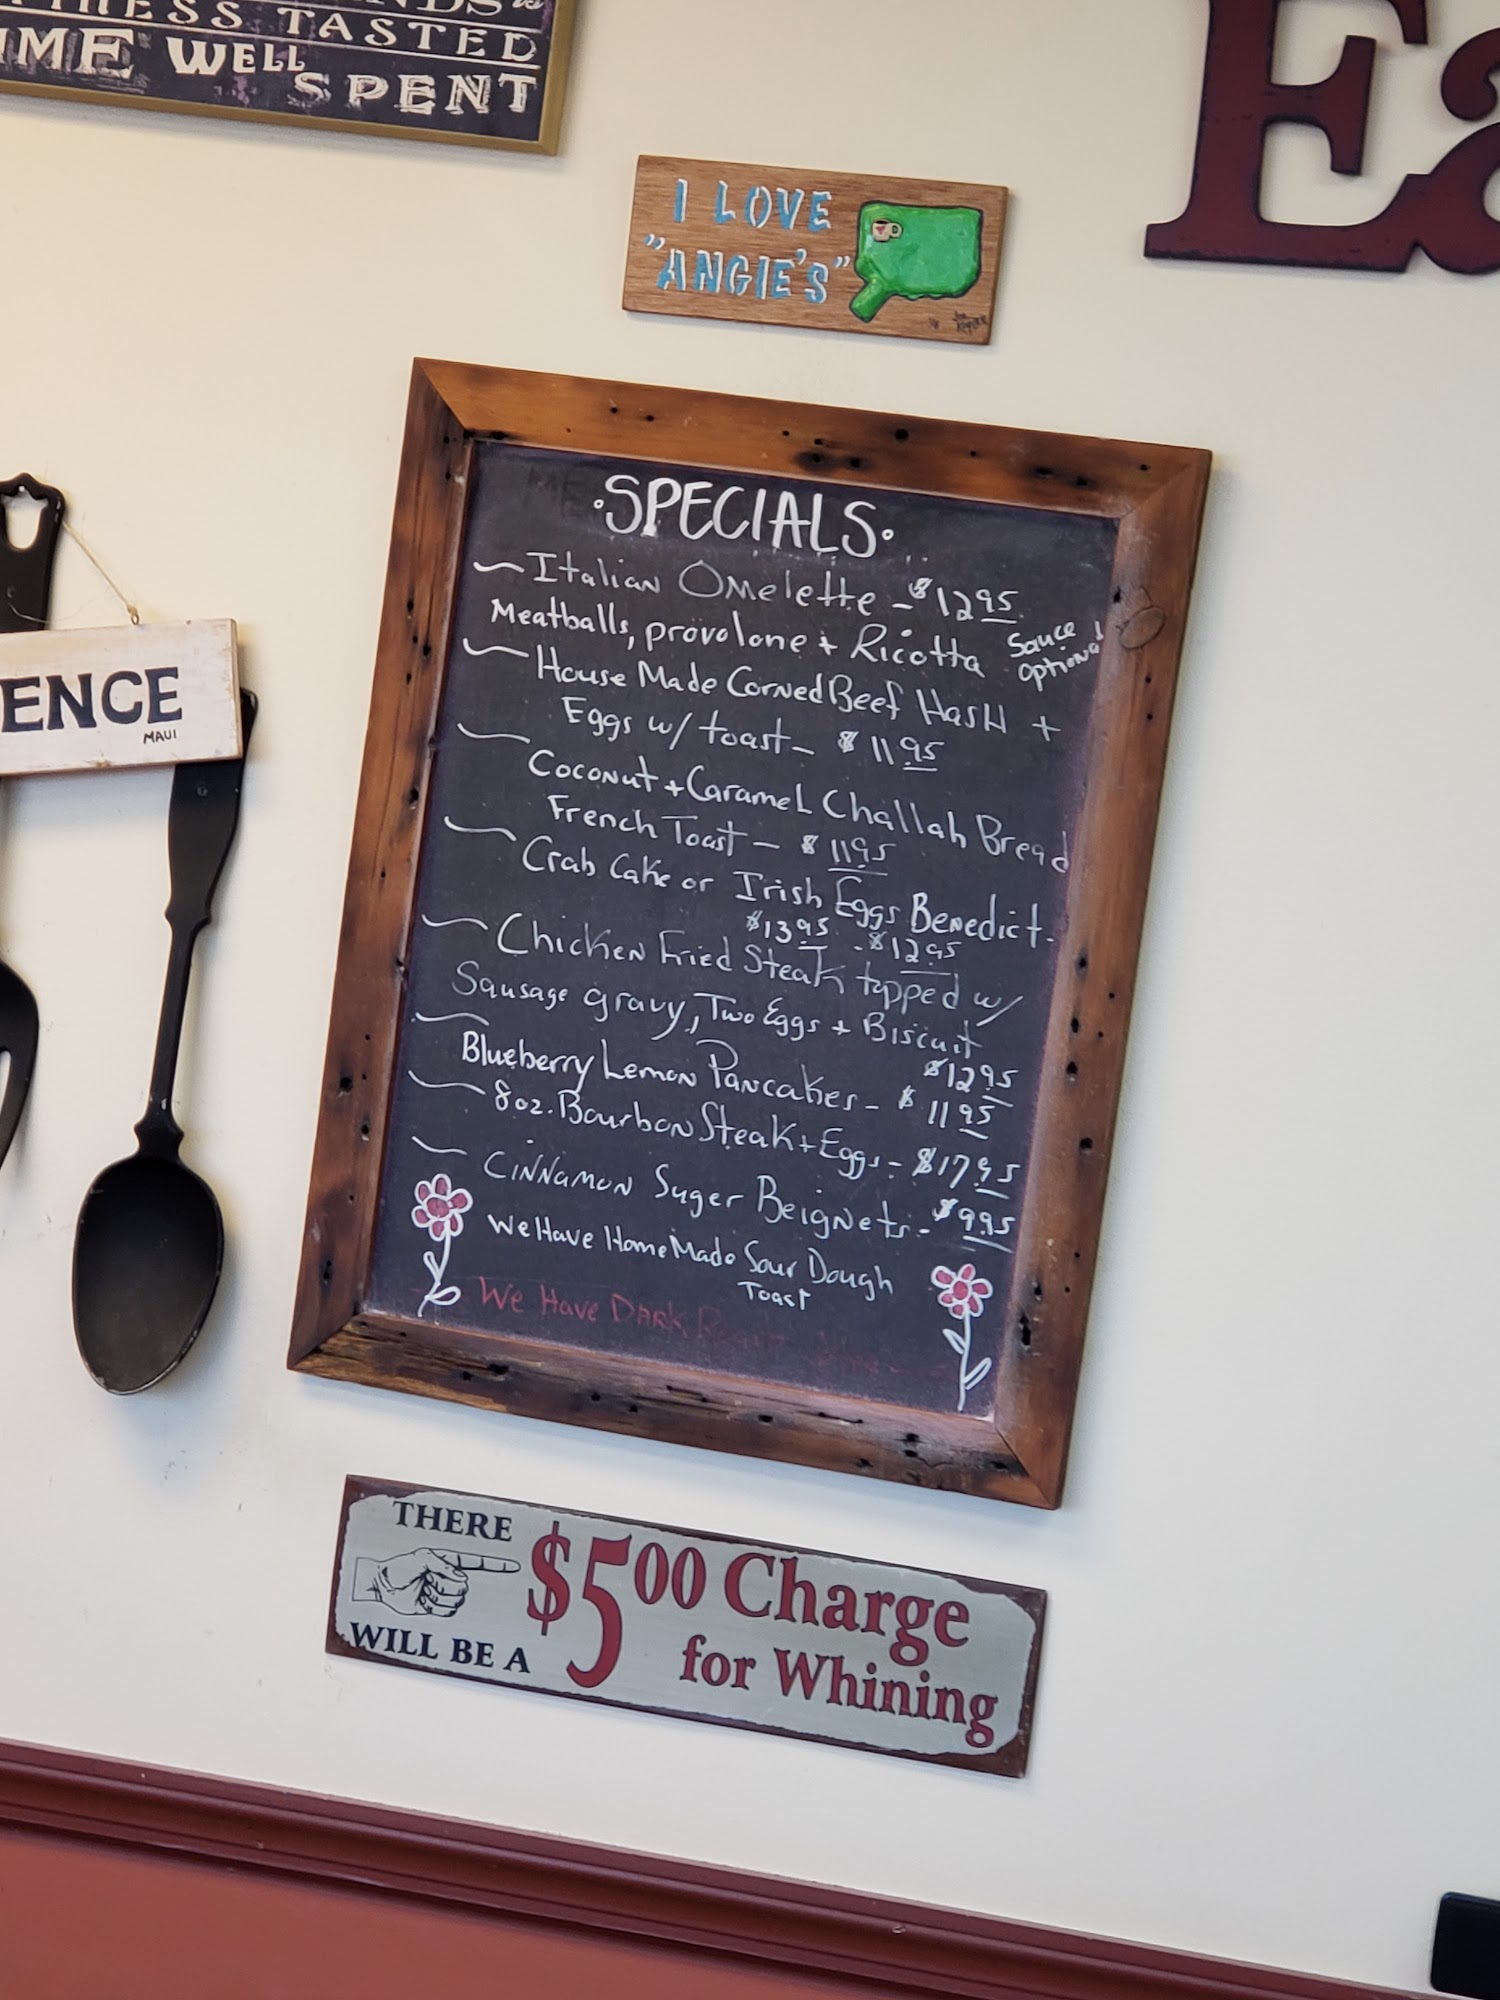 TASTED
WELL
SPENT
I LOVE
"ANGIE'S"
ENCE
MAUI
·SPECIALS·
Italian Omelette - $12 95
Meatballs, provolone + Ricotta Sauce optional
House Made Corned Beef Hash +
Eggs w/ toast - $11 95
Coconut + Caramel Challah Bread
French Toast - $11 95
Crab Cake or Irish Eggs Benedict -
$13 95 - $12 95
Chicken Fried Steak topped w/
Sausage gravy, Two Eggs + Biscuit
$12 95
Blueberry Lemon Pancakes - $11 95
8oz. Bourbon Steak + Eggs - $17 95
Cinnamon Suger Beignets - $9 95
We Have Home Made Sour Dough
Toast
We Have Dark
THERE
WILL BE A
$5 00 Charge
for Whining